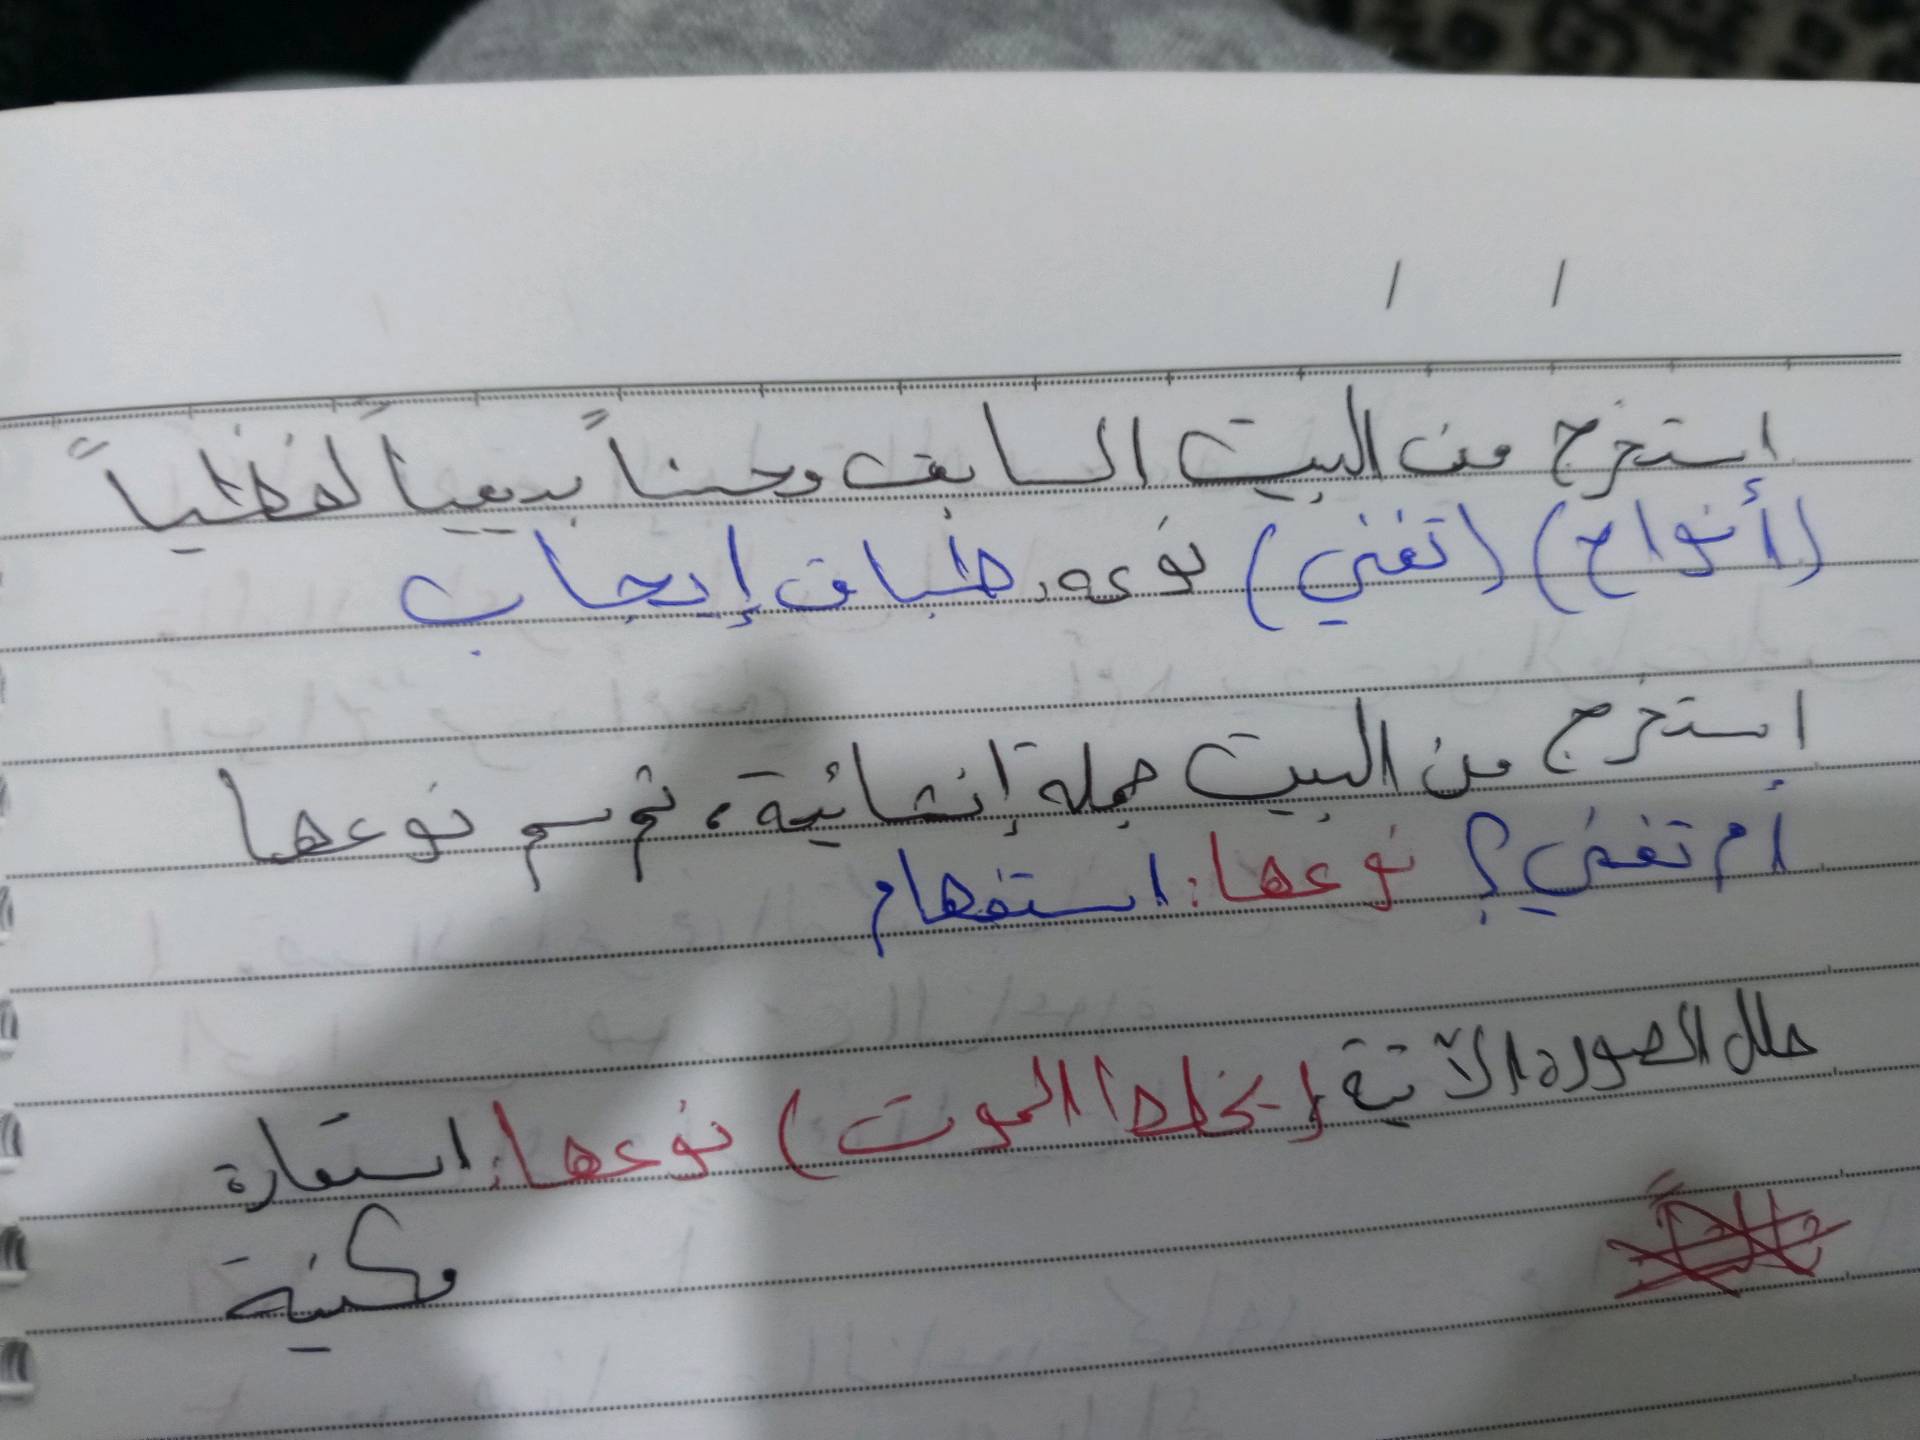 استخرج من البيت السابق وحسناً بديعياً لفظياً
(أنواح) (تغني) نوعه: طباق إيجاب
استخرج من البيت جملة إنشائية، ثم سم نوعها
أم تغني؟ نوعها: استفهام
حلل الصورة الآتية (يخلط الموت) نوعها: استعارة
مكنية